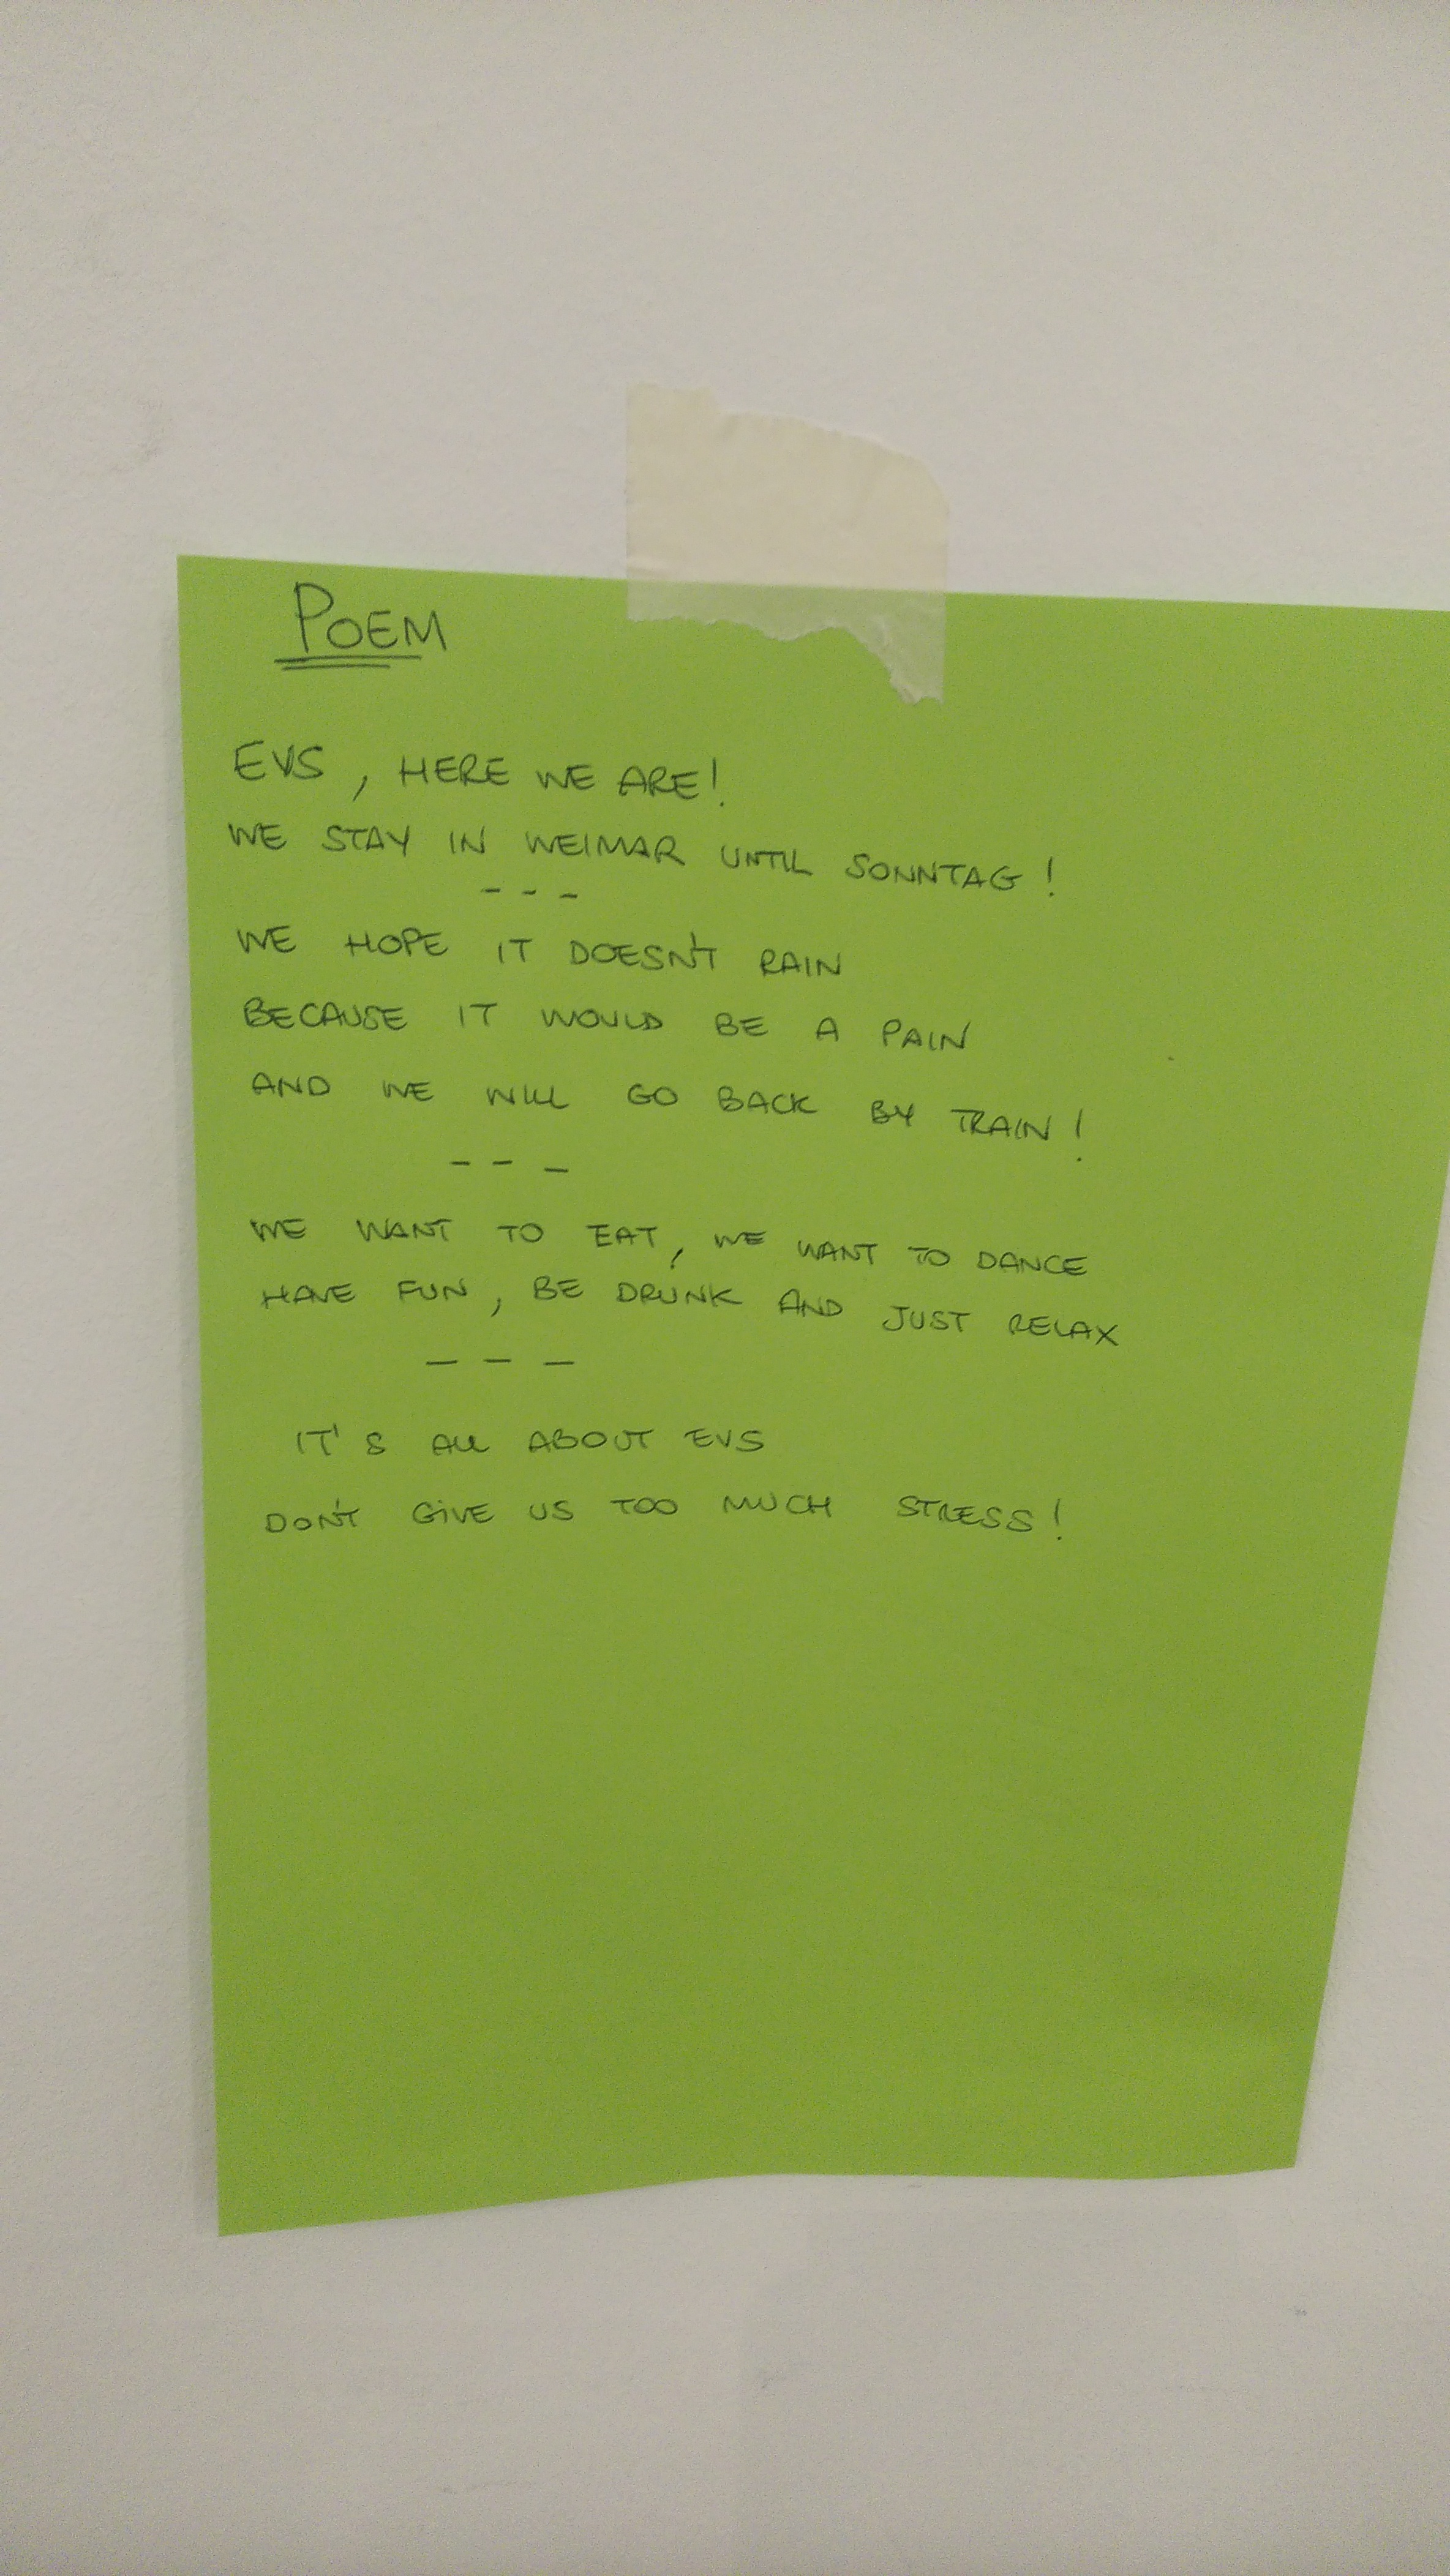 POEM
EVS, HERE WE ARE!
WE STAY IN WEIMAR UNTIL SONNTAG!
---
WE HOPE IT DOESN'T RAIN
BECAUSE IT WOULD BE A PAIN
AND WE WILL GO BACK BY TRAIN!
---
WE WANT TO EAT, WE WANT TO DANCE
HAVE FUN, BE DRUNK AND JUST RELAX
---
IT'S ALL ABOUT EVS
DON'T GIVE US TOO MUCH STRESS!